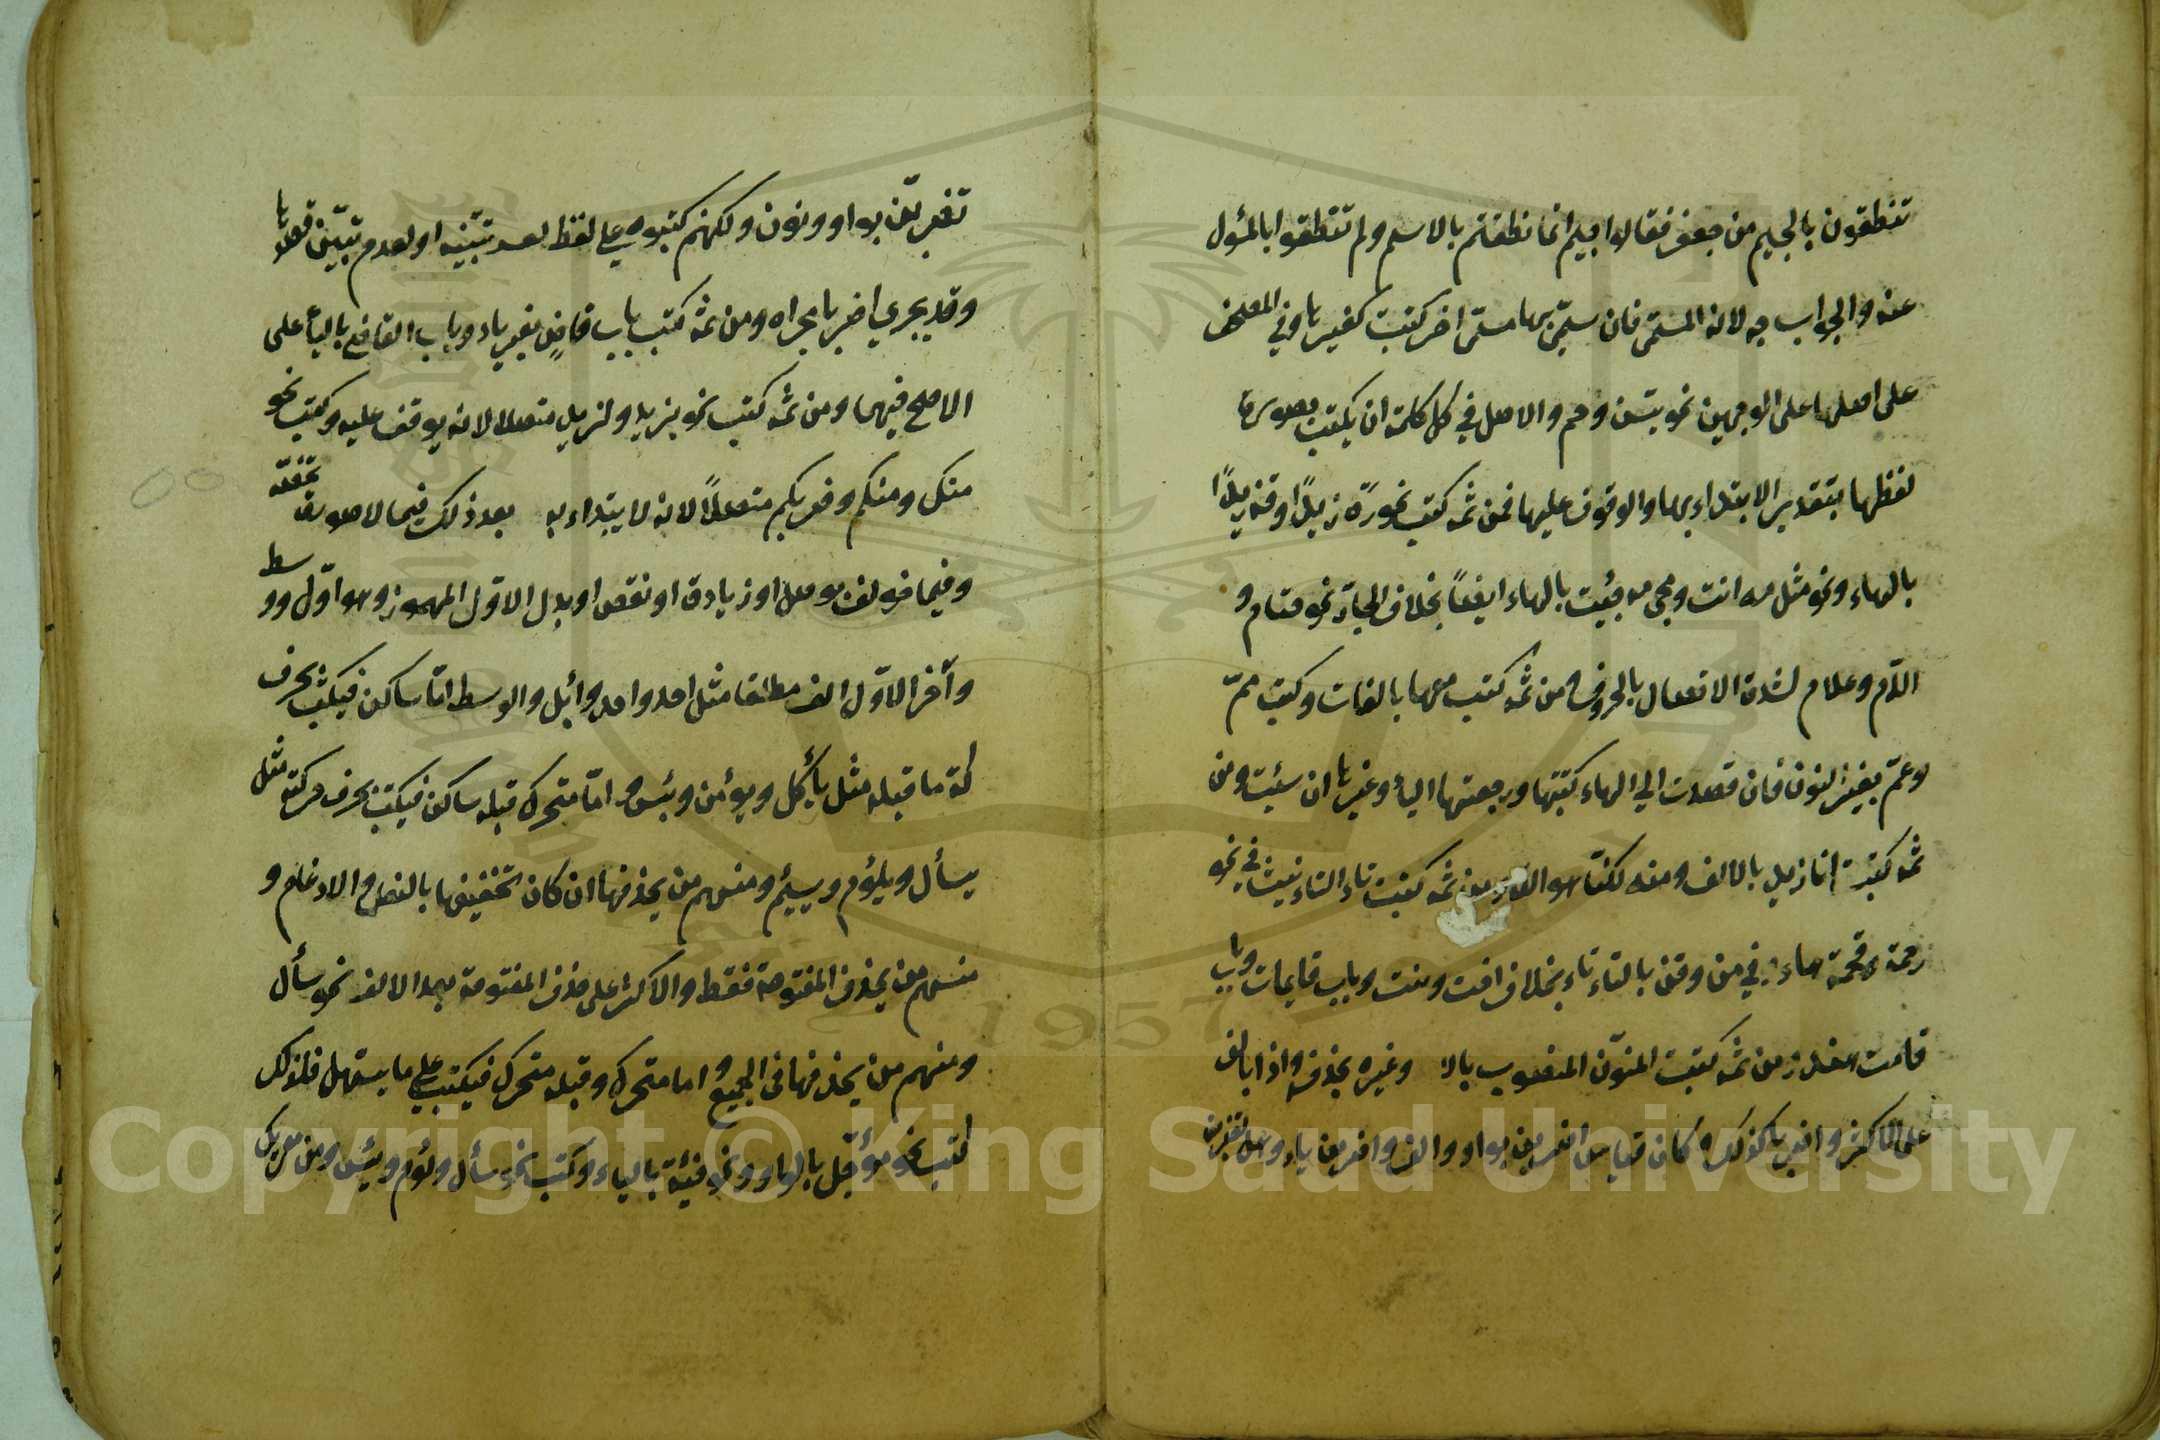 تنطقون بالجيم من جعفر فقالوا جيم انما نطقتم بالاسم ولم تنطقوا بالمسؤل
عنه والجواب جه لانه المسمى فان سمّي بها مسمى اخر كتبت كغيرها وفي المصحف
على اصلها على الوجهين نحو يس وحم والاصل في كل كلمة ان يكتب بصورة
لفظها بتقدير الابتداء بها والوقوف عليها فمن ثمه كتب نحو رَه زيدًا وقه زيدًا
بالهاء ونحو مثل مه انت ومجئ مه جئت بالهاء ايضاً بخلاف الجارّة نحو حتام و
الام وعلام لشدة الاتصال بالحروف ومن ثمه كتب معها بالفات وكتب ممّ
وعمّ بغير النون فان قصدت الي الهاء كتبتها ورجعتها الياء وغيرها ان شئت ومن
ثمه كتبت انا زيد بالالف ومنه لكنّا هو الله ومن ثمه كتبت تاء التانيث في نحو
رحمة وقمحة هاء في من وقف بالتاء تاء بخلاف اخت وبنت وباب قايمات وباب
قامت هند ومن ثمه كتبت المنوّن المنصوب بالا وغيره بحذفه واذا بالف
على الاكثر واضربا كذلك وكان قياس اضربن بواو والف واضربن بياء وهل تضربن
تضربن بواو ونون ولكنهم كتبوه على لفظ لعسر تبيّنه او لعدم تبيّن قصدها
وقد يجري اضربا مجراه ومن ثمه كتب باب قاضٍ بغير ياء وباب القاضي بالياء على
الاصح فيهما ومن ثمه كتب نحو بزيد ولزيد متصلا لانه يوقف عليه وكتب نحو
منك ومنكم وضربكم متصلاً لانه لا يبتداء به بعد ذلك فيما لا صورة تخصّه
وفيما خولف بوصل او زيادة او نقص او بدل الاوّل المهموز وهو اوّل ووسط
وآخر الاوّل الف مطلقا مثل احد واحد وابل والوسط امّا ساكن فيكتب بحرف
كة ما قبله مثل يأكل ويؤمن وبئس وامّا متحرك قبله ساكن فيكتب بحرف حركته مثل
يسأل ويلؤم ويسئم ومنهم من يحذفها ان كان تخفيفها بالنقل والادغام و
منهم من يحذف المفتوحة فقط والاكثر على حذف المفتوحة بعد الالف نحو سأل
ومنهم من يحذفها في الجميع واما متحرك وقبله متحرك فيكتب على ما يسهل فلذلك
كتب نحو مؤجّل بالواو ونحو فئة بالياء وكتب نحو سأل ولؤم ويئس ومن مقريك
Copyright © King Saud University
1957